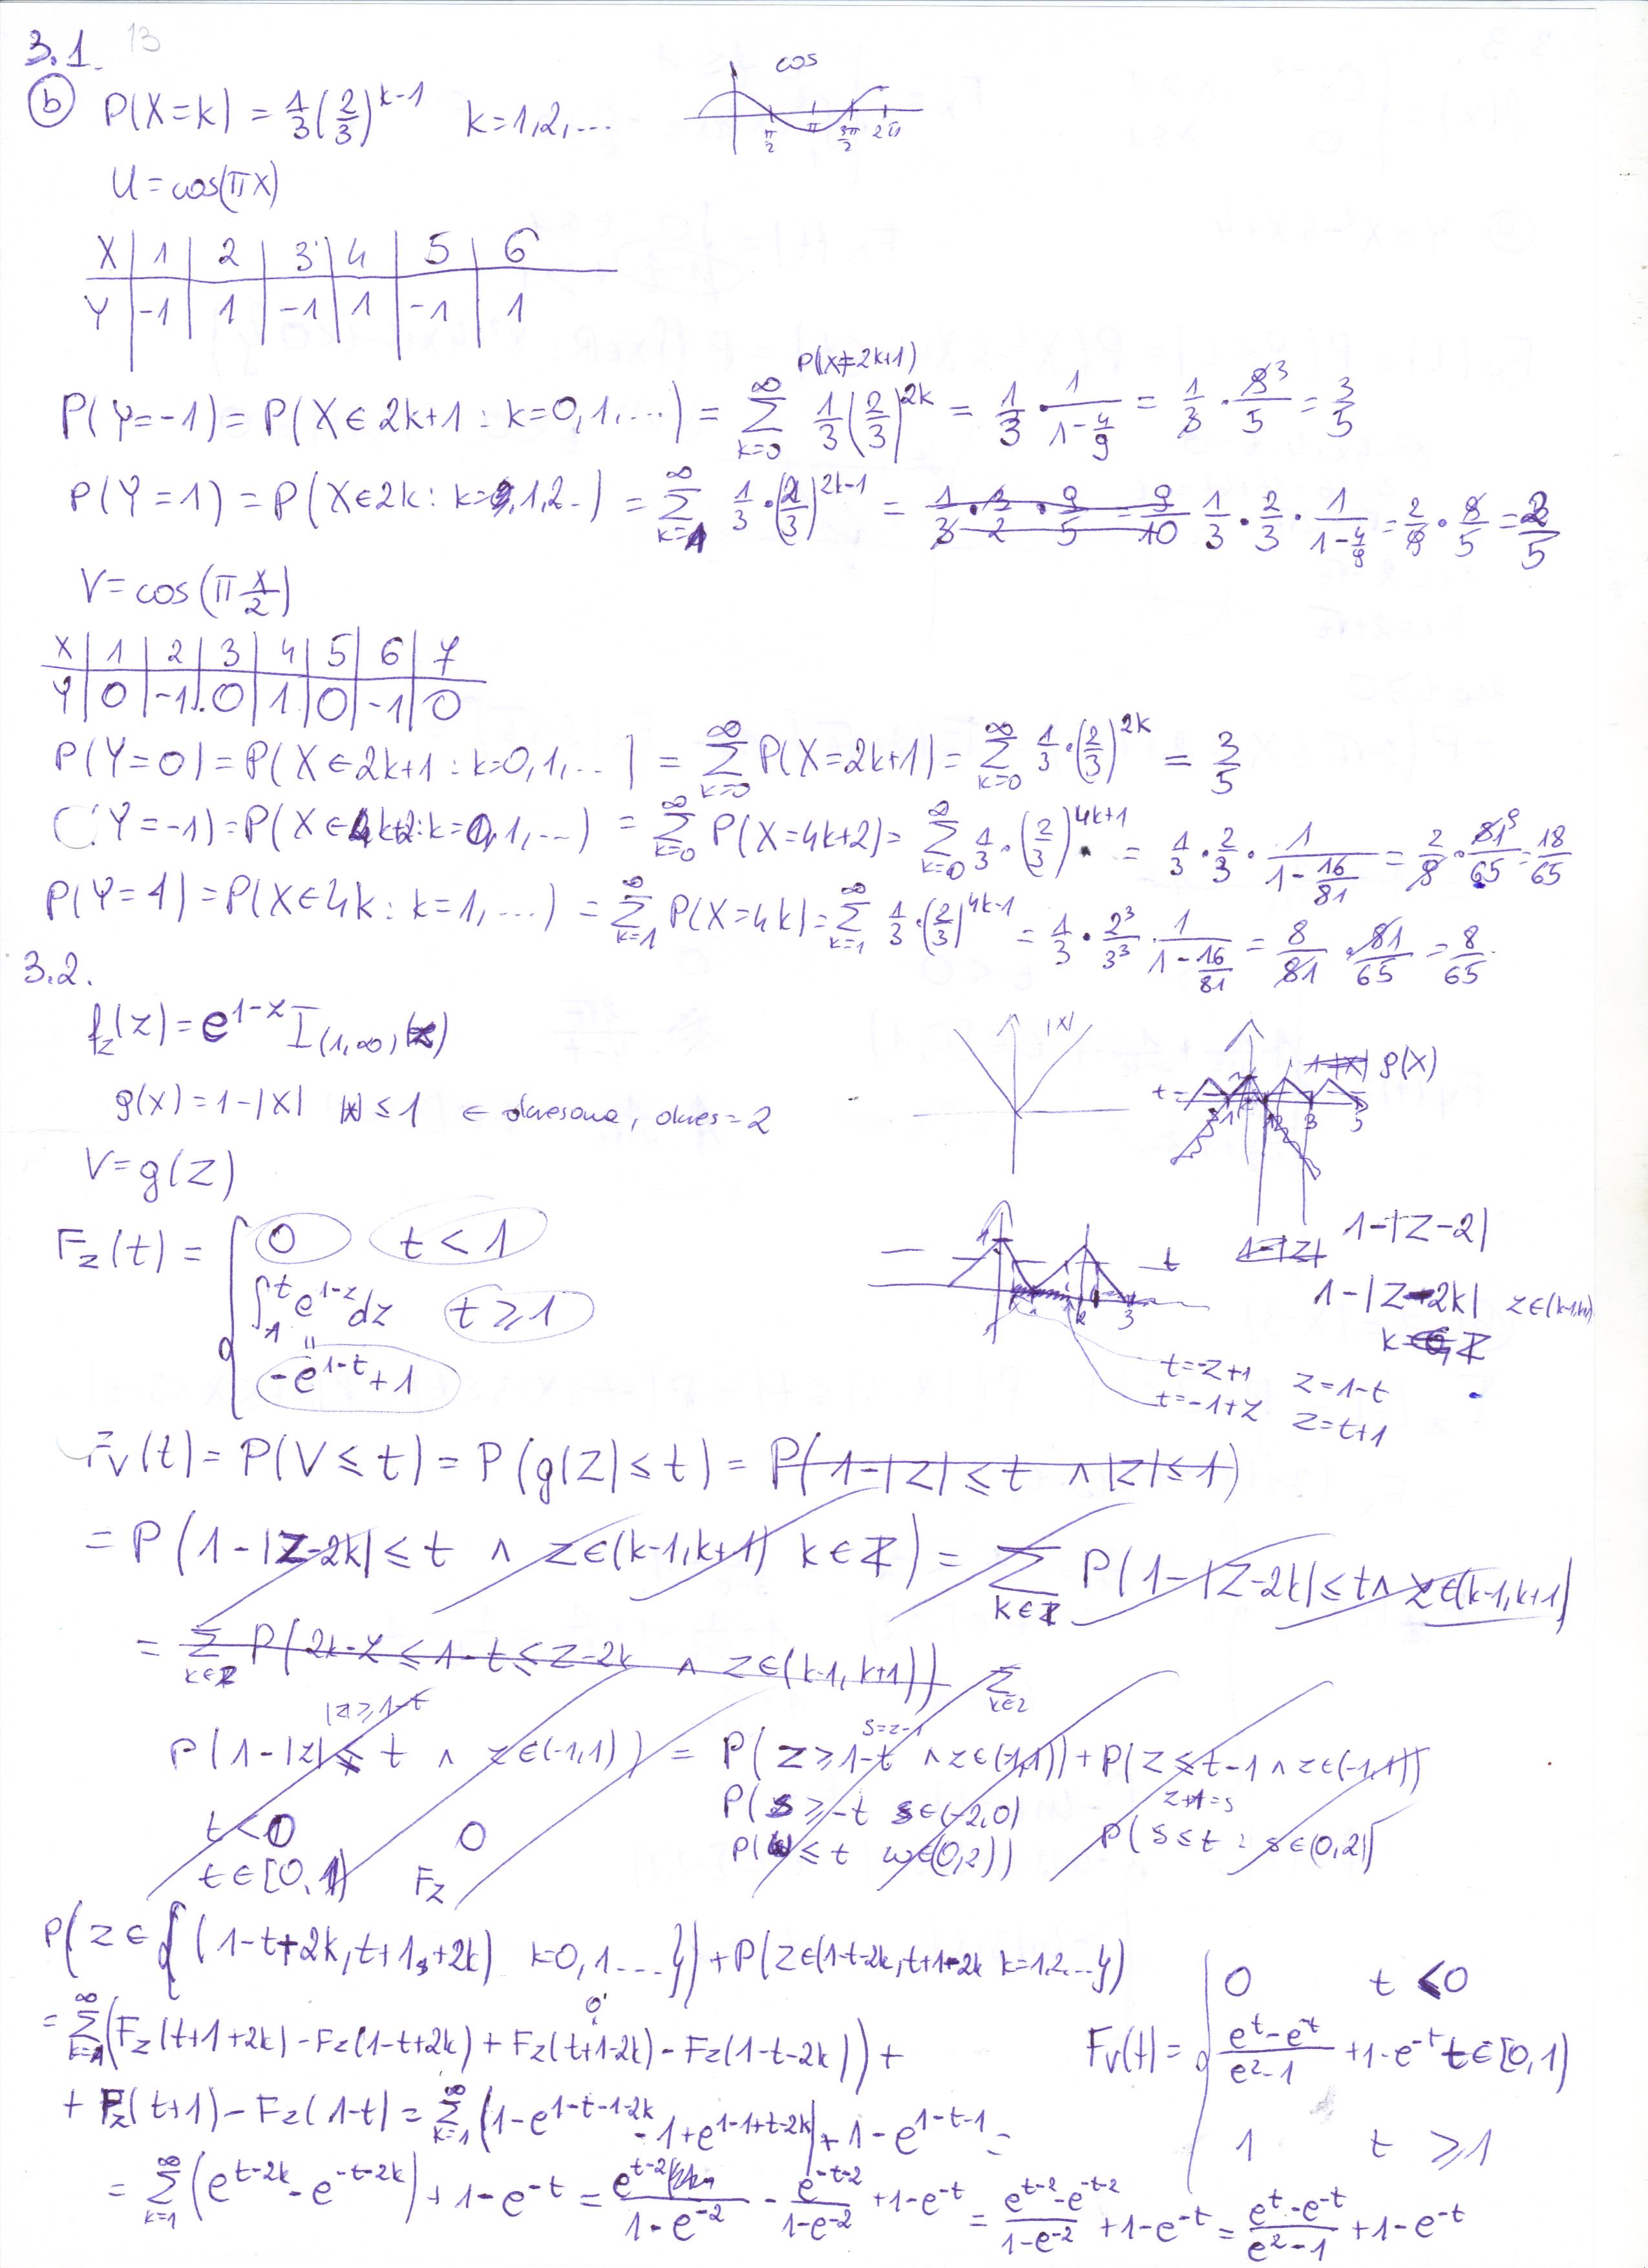 3.1. 13
(b) P(X=k) = 1/3 (2/3)^{k-1} k=1,2,...
cos
π/2 π 3π/2 2π
U = cos(πX)
X | 1 | 2 | 3 | 4 | 5 | 6
Y | -1 | 1 | -1 | 1 | -1 | 1
P(X=2k+1)
P(Y=-1) = P(X ∈ 2k+1 : k=0,1,...) = ∑_{k=0}^{∞} 1/3 (2/3)^{2k} = 1/3 · 1/(1-4/9) = 1/3 · 9/5 = 3/5
P(Y=1) = P(X∈2k : k=1,2..) = ∑_{k=1}^{∞} 1/3 · (2/3)^{2k-1} = 1/3 · 3/2 · 9/5 = 9/10 1/3 · 2/3 · 1/(1-4/9) = 2/9 · 9/5 = 2/5
V = cos(π X/2)
X | 1 | 2 | 3 | 4 | 5 | 6 | 7
Y | 0 | -1 | 0 | 1 | 0 | -1 | 0
P(Y=0) = P(X∈2k+1 : k=0,1,...) = ∑_{k=0}^{∞} P(X=2k+1) = ∑_{k=0}^{∞} 1/3 · (2/3)^{2k} = 3/5
(Y=-1) = P(X∈4k+2 : k=0,1,...) = ∑_{k=0}^{∞} P(X=4k+2) = ∑_{k=0}^{∞} 1/3 · (2/3)^{4k+1} = 1/3 · 2/3 · 1/(1-16/81) = 2/9 · 81/65 = 18/65
P(Y=1) = P(X∈4k : k=1,...) = ∑_{k=1}^{∞} P(X=4k) = ∑_{k=1}^{∞} 1/3 · (2/3)^{4k-1} = 1/3 · 2^3/3^3 · 1/(1-16/81) = 8/81 · 81/65 = 8/65
3.2.
f_z(z) = e^{1-z} I_{(1,∞)}(z)
|x|
g(x)
g(x) = 1-|x| |x| ≤ 1 ← okresowa, okres=2
t=
V = g(Z)
F_z(t) = { 0 t < 1
∫_1^t e^{1-z} dz t ≥ 1
-e^{1-t}+1
t 1-|z| 1-|z-2|
1-|z-2k| z∈(k-1,k+1)
k∈Z
1 2 3
t=-z+1 z=1-t
t=-1+z z=t+1
F_V(t) = P(V ≤ t) = P(g(Z) ≤ t) = P(1-|Z| ≤ t ∧ |Z| ≤ 1)
= P(1-|Z-2k| ≤ t ∧ z∈(k-1,k+1) k∈Z) = ∑_{k∈Z} P(1-|Z-2k| ≤ t ∧ z∈(k-1,k+1)
= ∑_{k∈Z} P(2k-z ≤ 1-t ≤ z-2k ∧ z∈(k-1,k+1)) ∑_{k∈Z}
|z| ≥ 1-t
s=z-1
P(1-|z| ≤ t ∧ z∈(-1,1)) = P(z ≥ 1-t ∧ z∈(-1,1)) + P(z ≤ t-1 ∧ z∈(-1,1))
P(s ≥ -t s∈(-2,0) z+1=s
t<0 0 P(w ≤ t w∈(0,2)) P(s ≤ t : s∈(0,2)
t∈[0,1) F_z
P(z∈{(1-t+2k, t+1+2k) k=0,1....}) + P(z∈(1-t-2k, t+1-2k k=1,2...})
= ∑_{k=1}^{∞} (F_z(t+1+2k) - F_z(1-t+2k) + F_z(t+1-2k) - F_z(1-t-2k)) +
0
+ F_z(t+1) - F_z(1-t) = ∑_{k=1}^{∞} (1-e^{1-t-1-2k} - 1+e^{1-1+t-2k}) + 1-e^{1-t-1} =
= ∑_{k=1}^{∞} (e^{t-2k} - e^{-t-2k}) + 1-e^{-t} = e^{t-2}/(1-e^{-2}) - e^{-t-2}/(1-e^{-2}) + 1-e^{-t} = (e^{t-2}-e^{-t-2})/(1-e^{-2}) + 1-e^{-t} = (e^t-e^{-t})/(e^2-1) + 1-e^{-t}
F_V(t) = { 0 t < 0
(e^t-e^{-t})/(e^2-1) + 1-e^{-t} t∈[0,1)
1 t ≥ 1